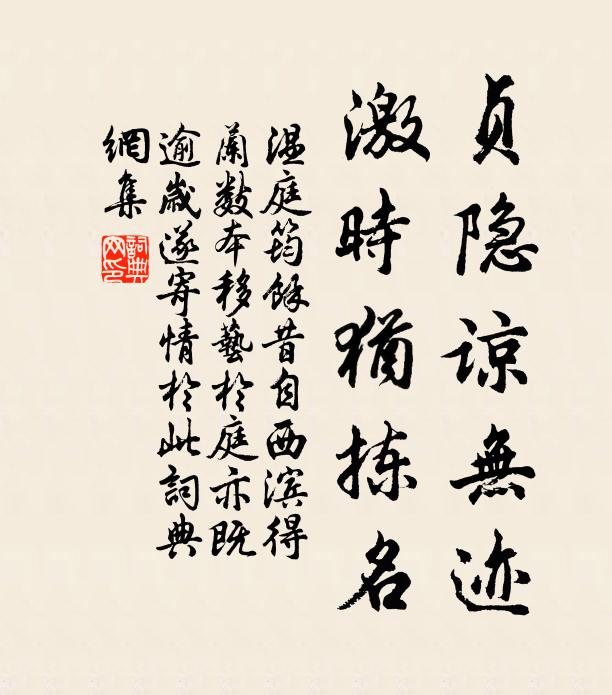 贞隐谅無迹
激時猶拣名
温庭筠餘昔自西滨得
蘭数本移藝於庭亦既
逾歲遂寄情於此詞典
網集
詞典网印